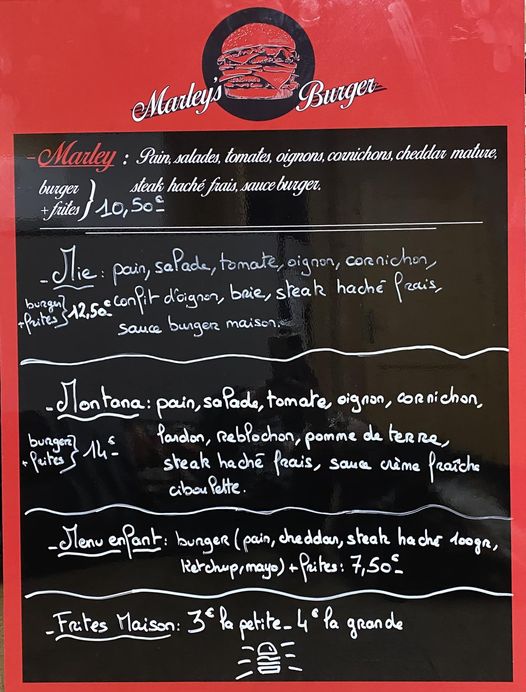 Marley's Burger
- Marley : Pain, salades, tomates, oignons, cornichons, cheddar mature,
burger steak haché frais, sauce burger.
+ frites } 10,50€
- Mie : pain, salade, tomate, oignon, cornichon,
burger + frites } 12,50€ confit d'oignon, brie, steak haché frais,
sauce burger maison.
- Montana : pain, salade, tomate, oignon, cornichon,
burger + frites } 14€ lardon, reblochon, pomme de terre,
steak haché frais, sauce crème fraîche
ciboulette.
- Menu enfant : burger (pain, cheddar, steak haché 100gr,
ketchup, mayo) + frites : 7,50€
- Frites Maison : 3€ la petite - 4€ la grande